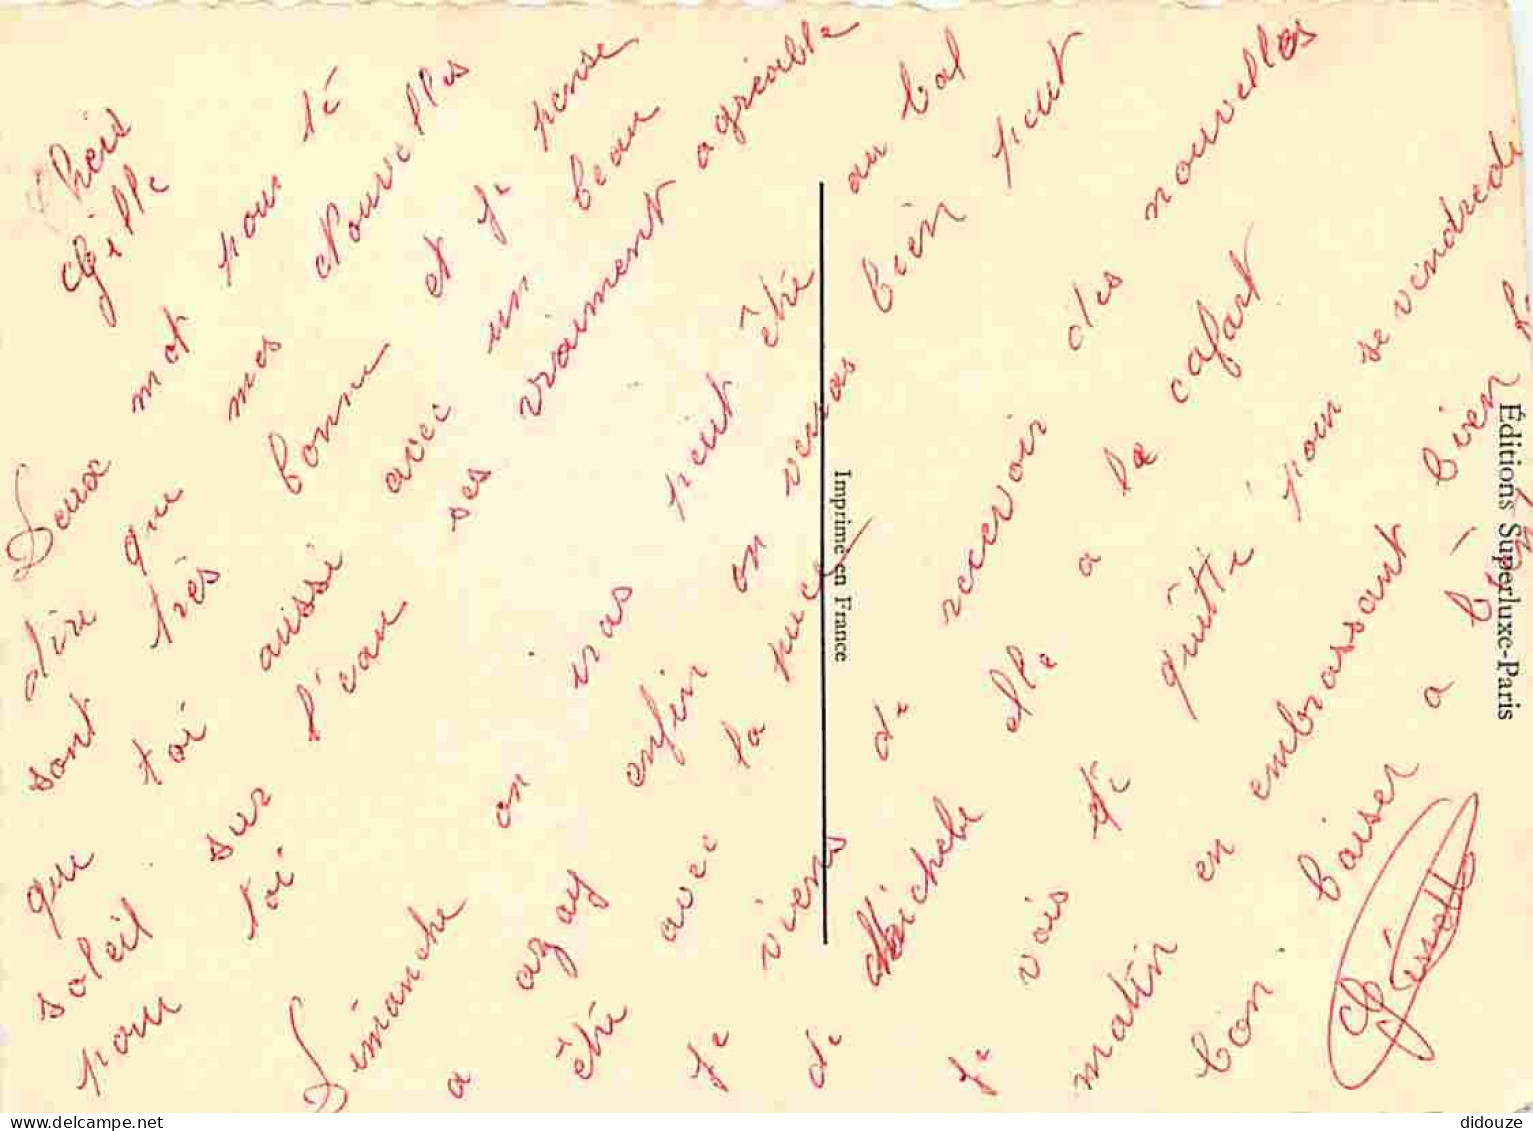 Cheis
Gille
Deux mot pour té
dire que mes nouvelles
sont très bonne et je pense
que toi aussi avec un beau
soleil sur l'eau ses vraiment agréable
pour toi
Dimanche on iras peut être au bal
a azay enfin on verras bien peut
être avec la puce
je viens de recevoir des nouvelles
de Michele elle a le cafart
je vois te quitté pour se vendredi
matin en embrassant bien f
bon baiser a b
Ginette
Imprimé en France
Éditions Superluxe-Paris
didouze